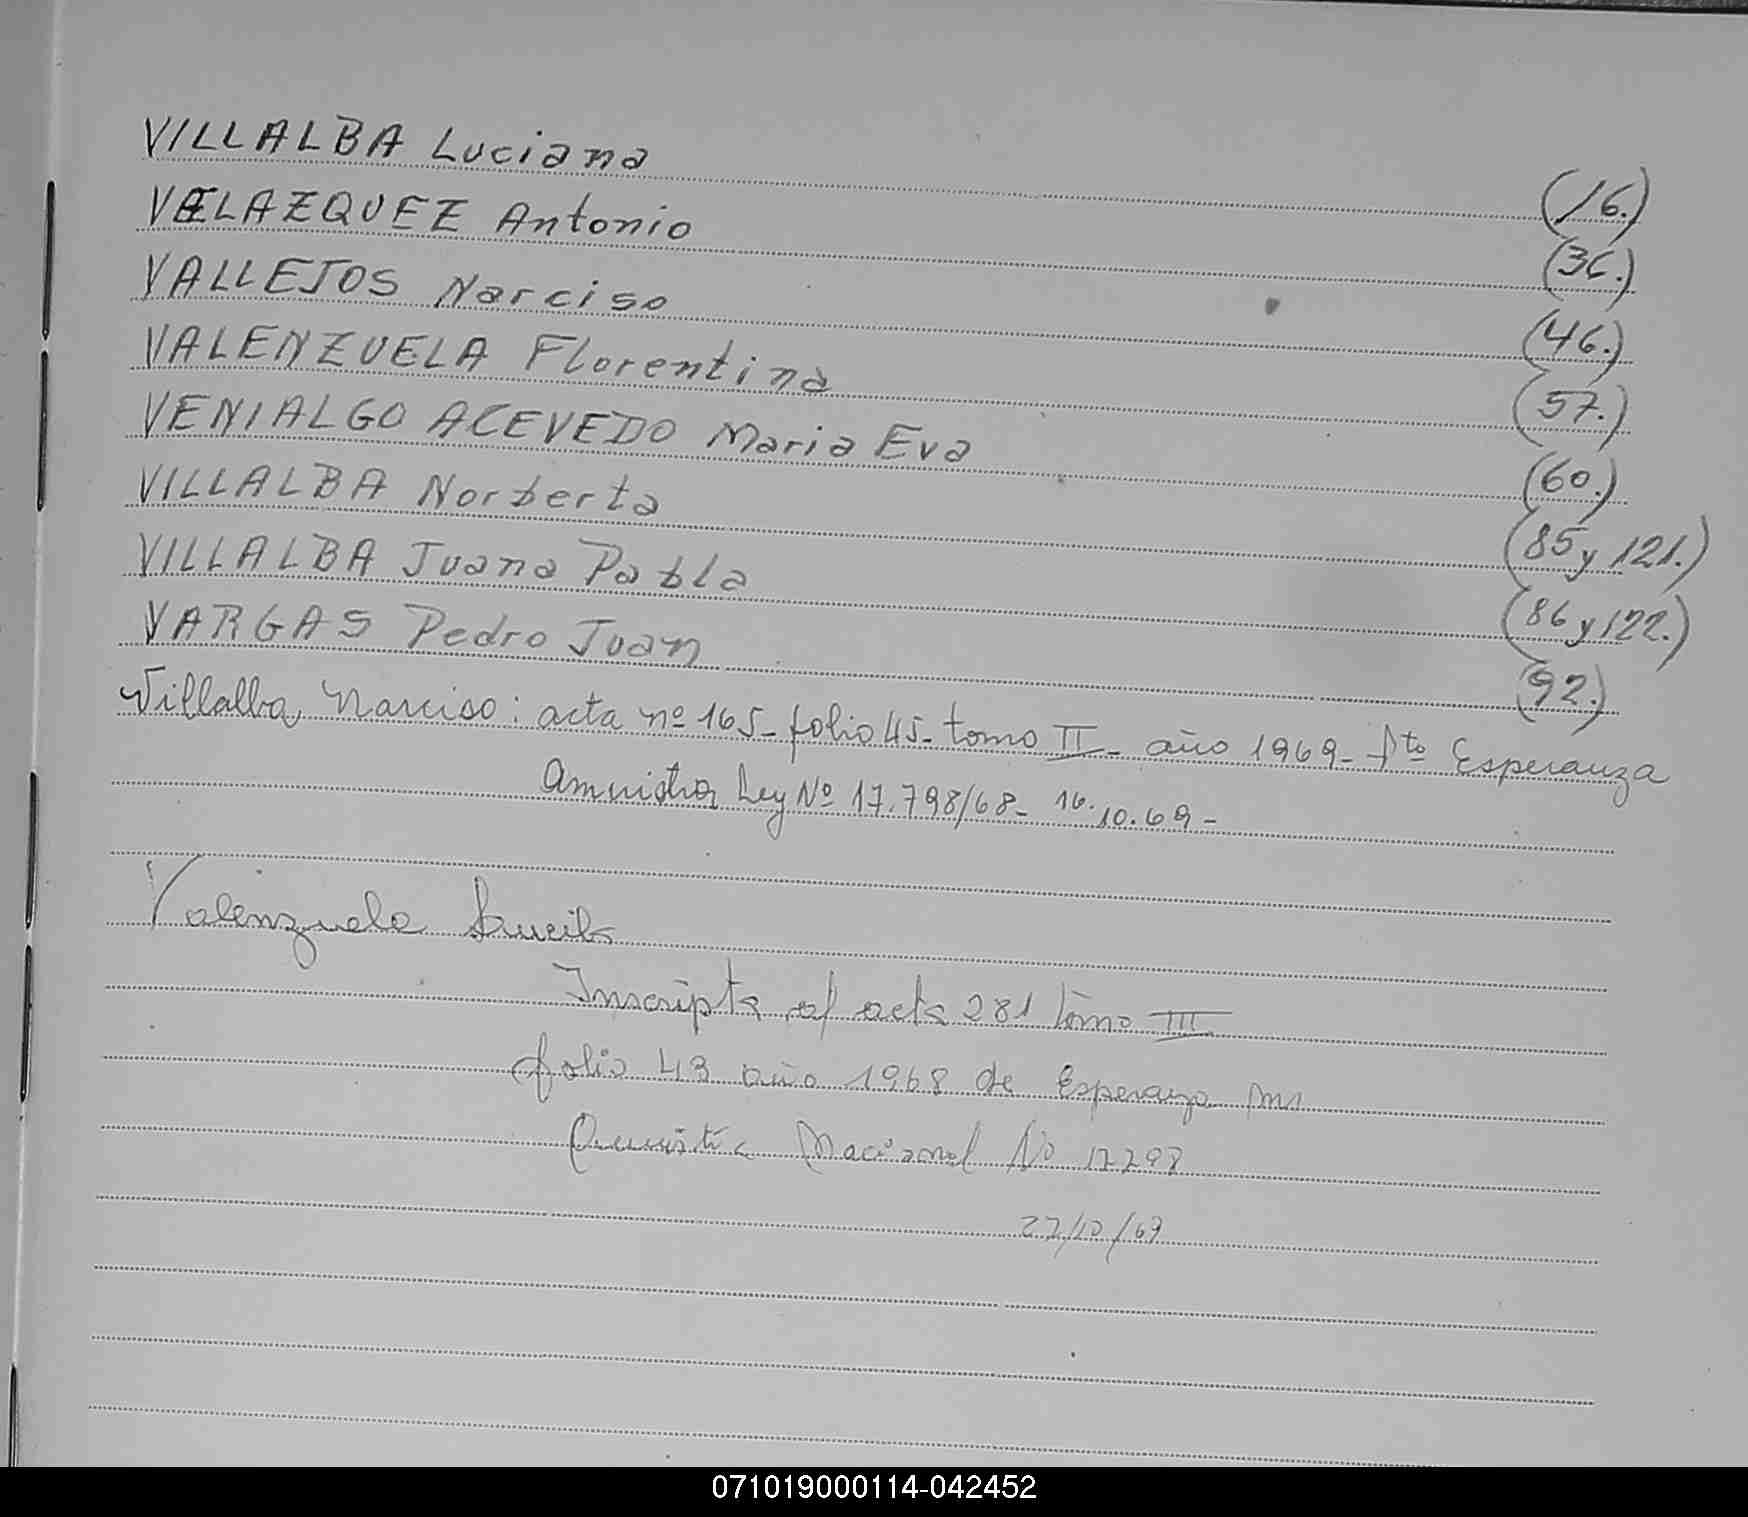 VILLALBA Luciana (16.)
VELAZQUEZ Antonio (36.)
VALLEJOS Narciso (46.)
VALENZUELA Florentina (57.)
VENIALGO ACEVEDO Maria Eva (60.)
VILLALBA Norberta (85 y 121.)
VILLALBA Juana Pabla (86 y 122.)
VARGAS Pedro Juan (92.)
Villalba Narciso: acta nº 165- folio 45- tomo II- año 1969- Pto Esperanza
Amnistia Ley Nº 17.798/68- 16.10.69-
Valenzuela
Inscripta al acta 281 tomo III
folio 43 año 1968 de Esperanza Mns
Amnistia Nacional No
/10/69
071019000114-042452